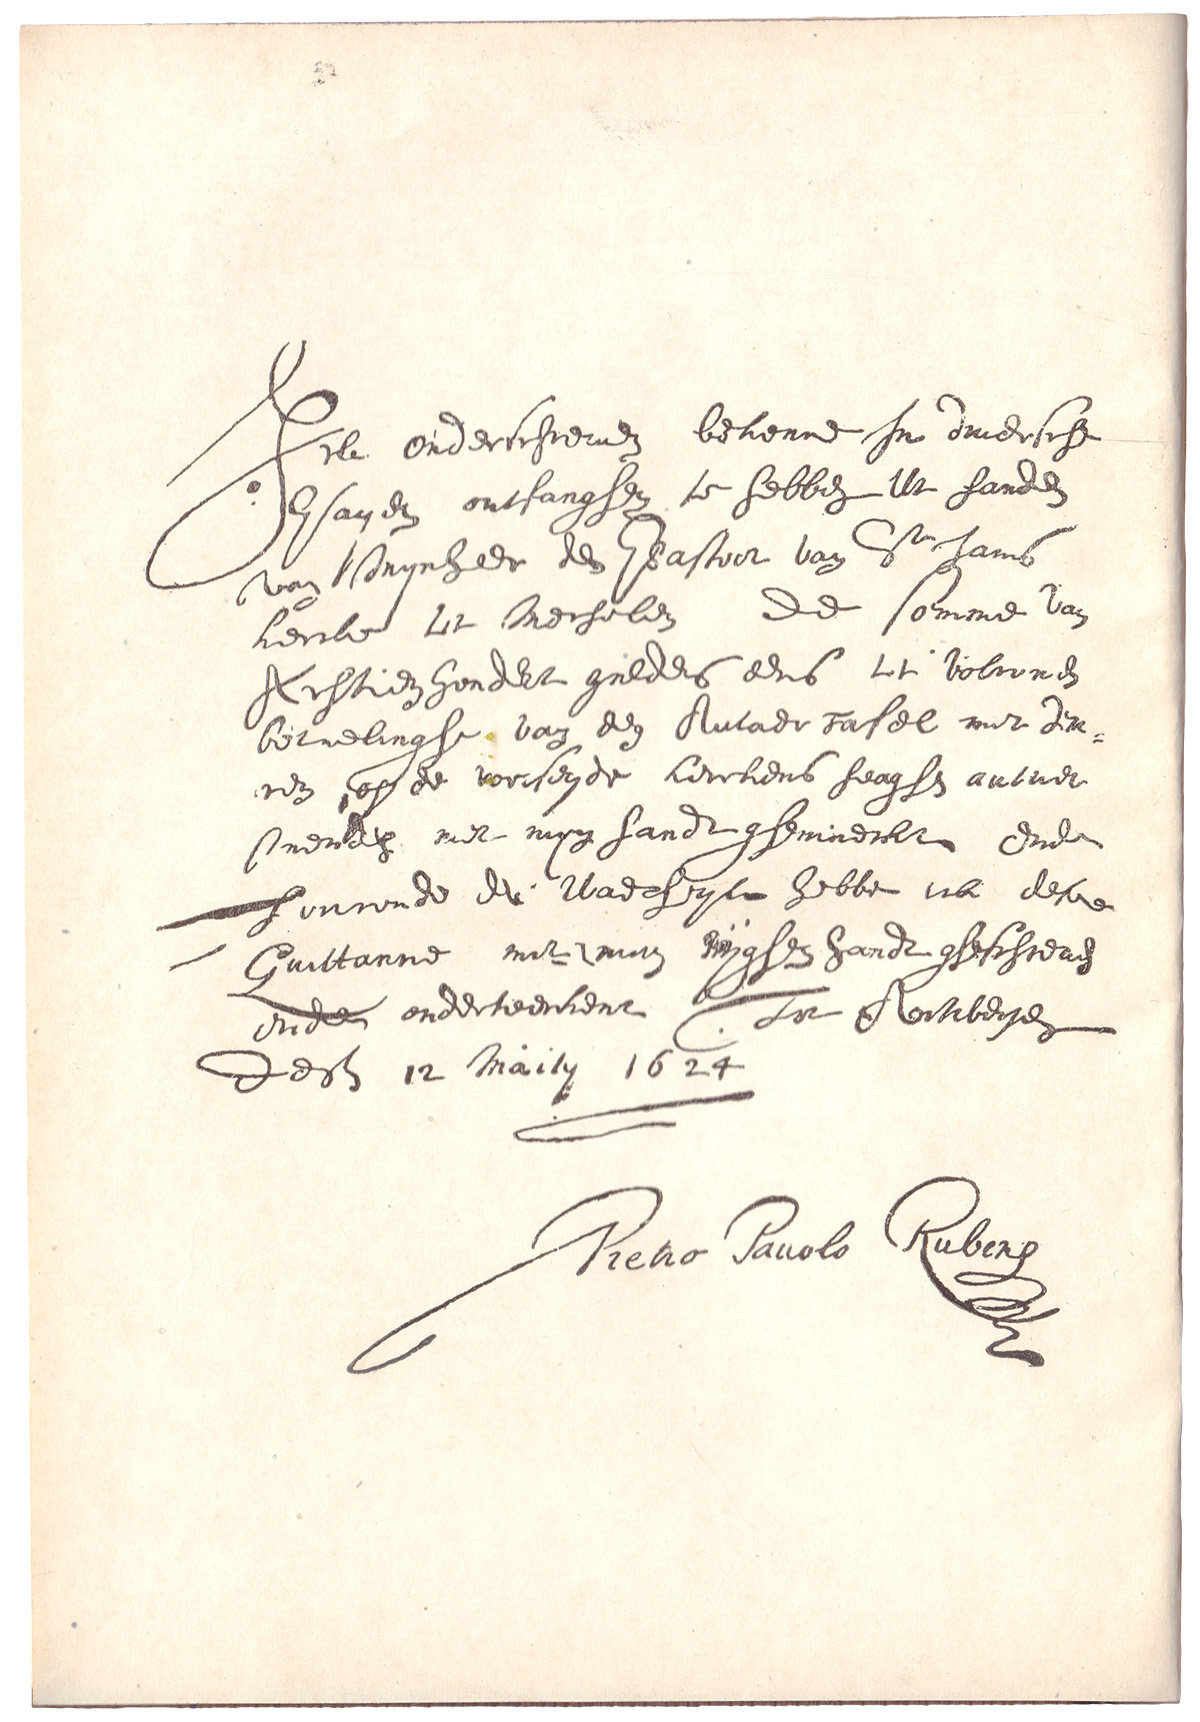 Ick onderschreven bekenne in diversche
Paeyen ontfanghen te hebben Ut handen
van Mynheer den Pastoor van St Jans
kercke tot Mechelen de somme van
Achtien hondert guldens eens tot volcomen
betaelinghe van den Autaer Tafel met deu-
ren op de voorseyde kerckens hooghen autaer
staende met myn handt ghemaeckt Ende
t'oirconde der Waerheyt hebbe ick dese
Quittancie met myn eyghen handt gheschreven
ende onderteeckent Tot Antwerpen
Desen 12 Maity 1624
Pietro Pauolo Rubens